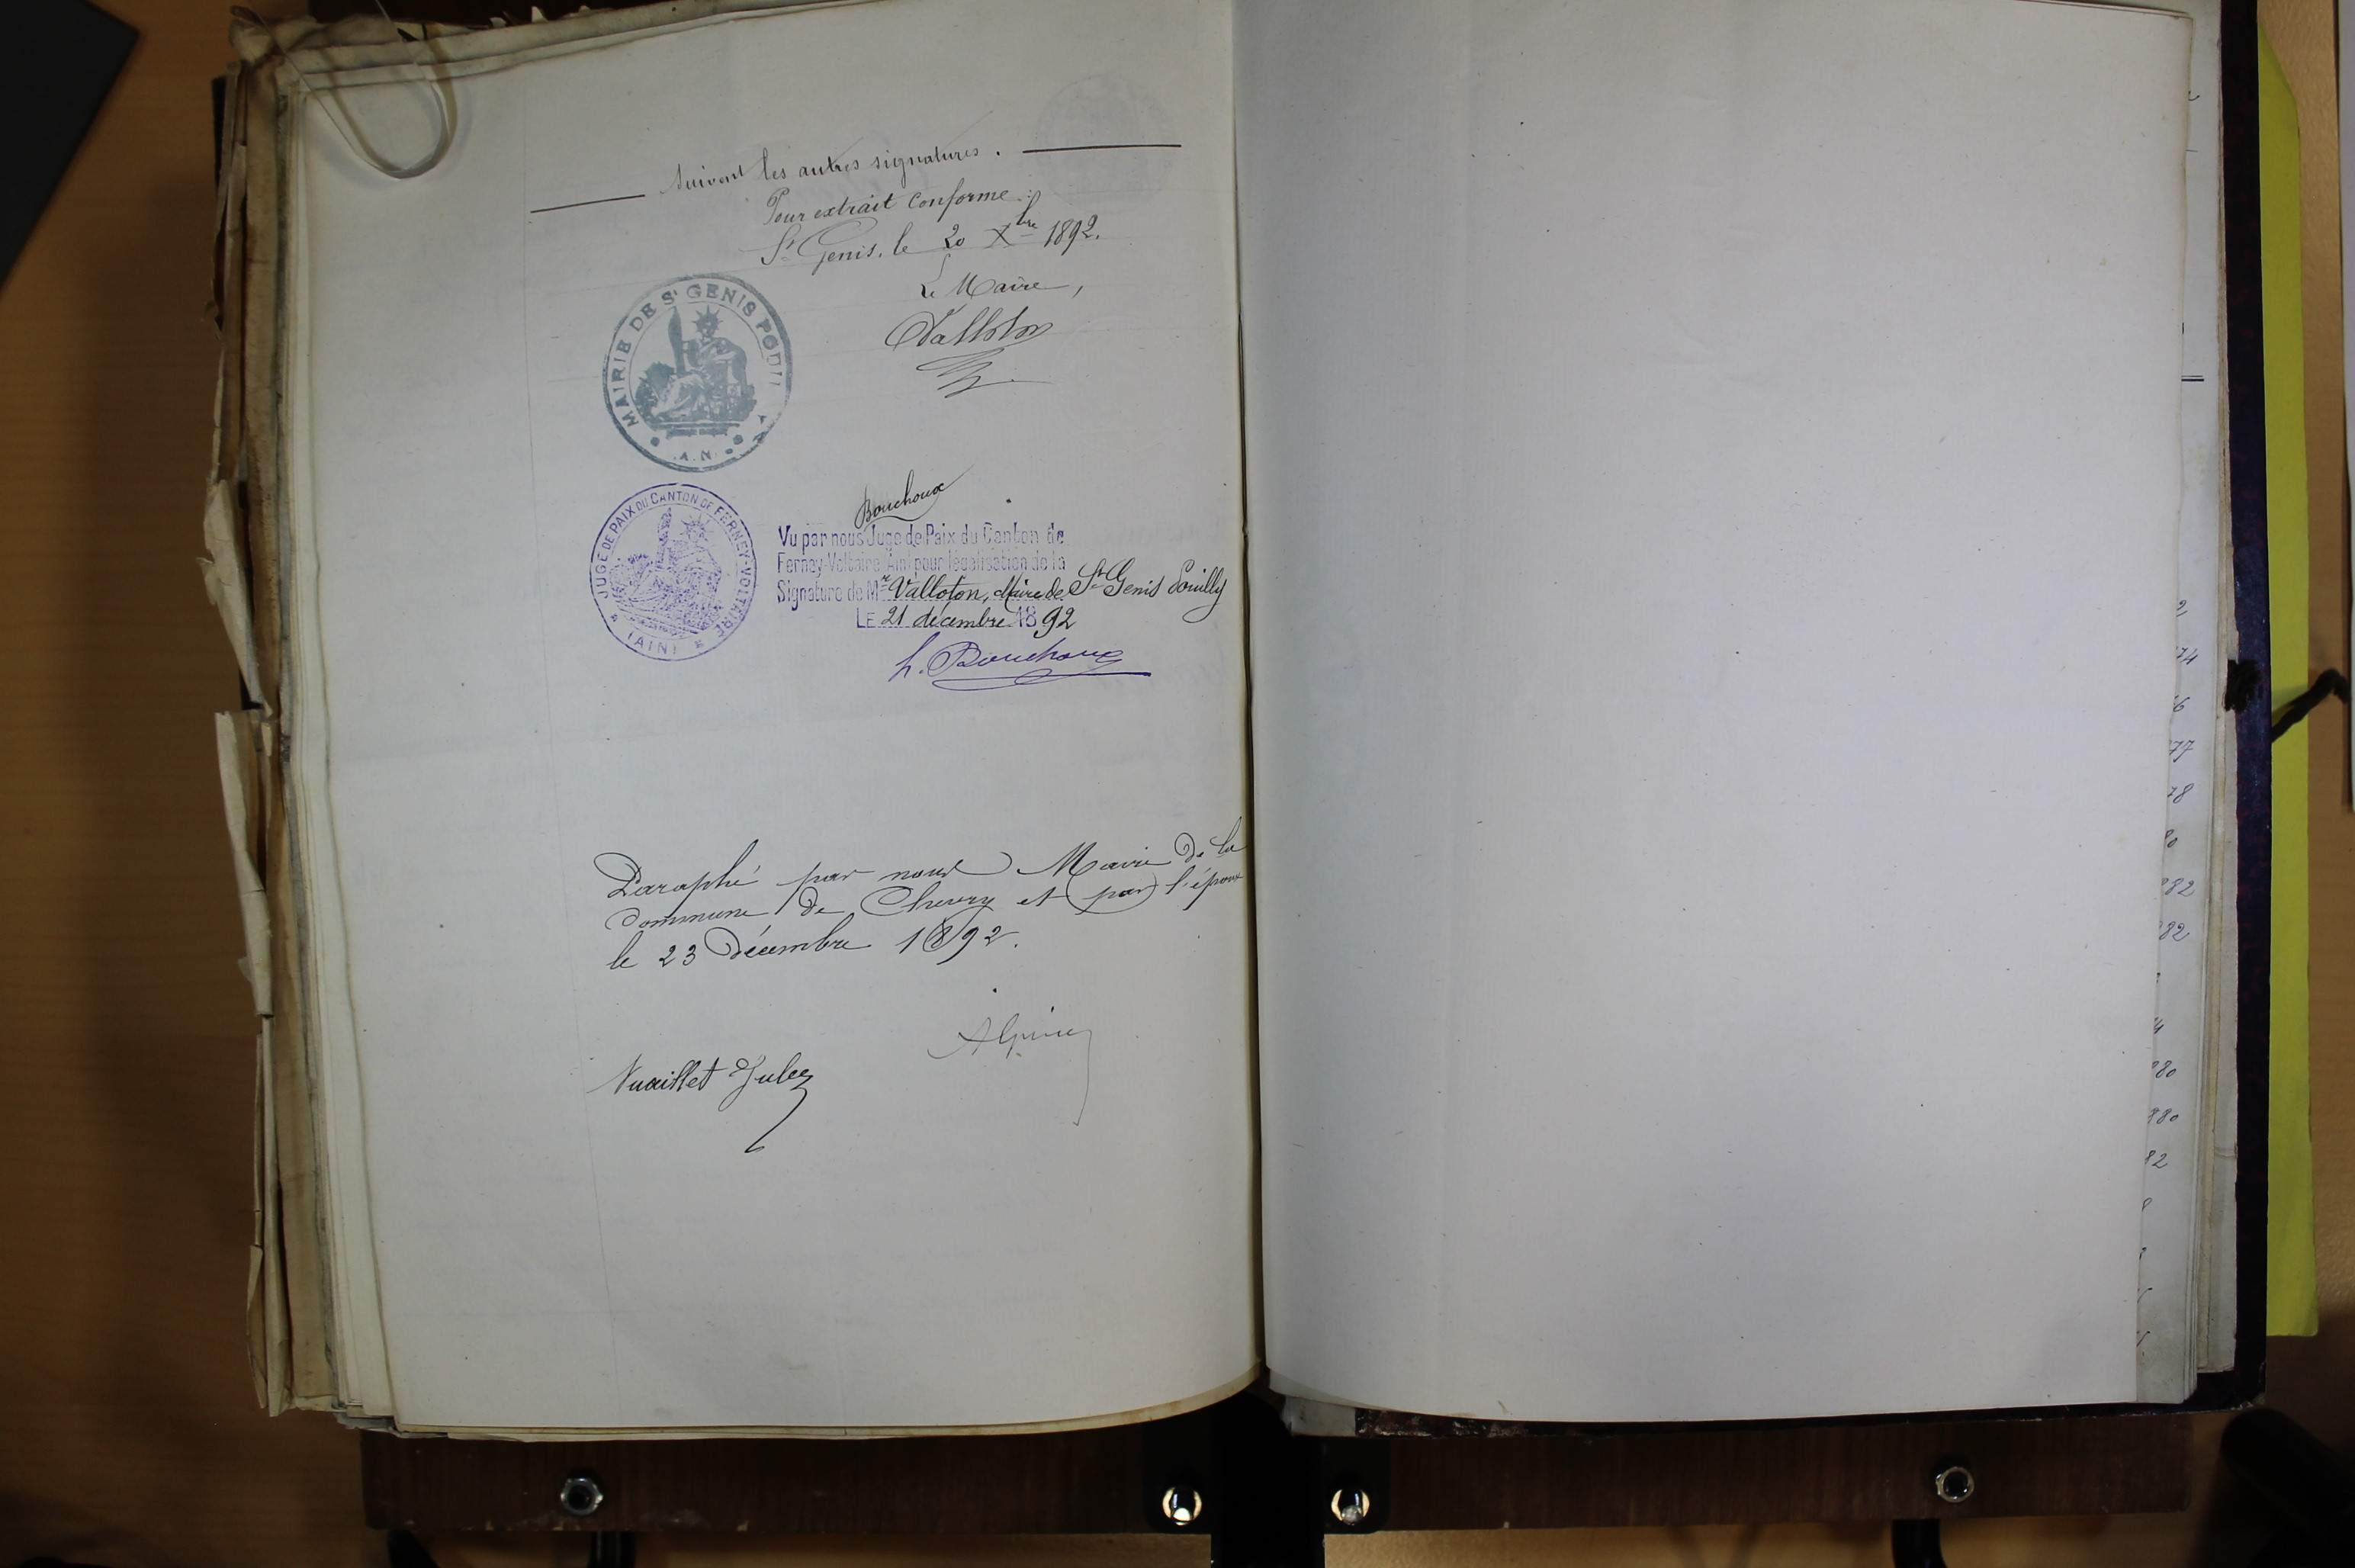 Suivent les autres signatures.
Pour extrait conforme :
St Genis, le 20 Xbre 1892.
Le Maire,
Valloton
MAIRIE DE St GENIS POUILLY
AIN
Bouchoux
JUGE DE PAIX DU CANTON DE FERNEY-VOLTAIRE
(AIN)
Vu par nous Juge de Paix du Canton de
Ferney-Voltaire (Ain) pour légalisation de la
Signature de Mr Valloton, Maire de St Genis Pouilly
LE 21 décembre 1892
h. Bouchoux
Paraphé par nous Maire de la
Commune de Chevry et par l'époux
le 23 Décembre 1892.
Vuaillet Jules
2
74
6
77
78
80
82
82
4
80
880
82